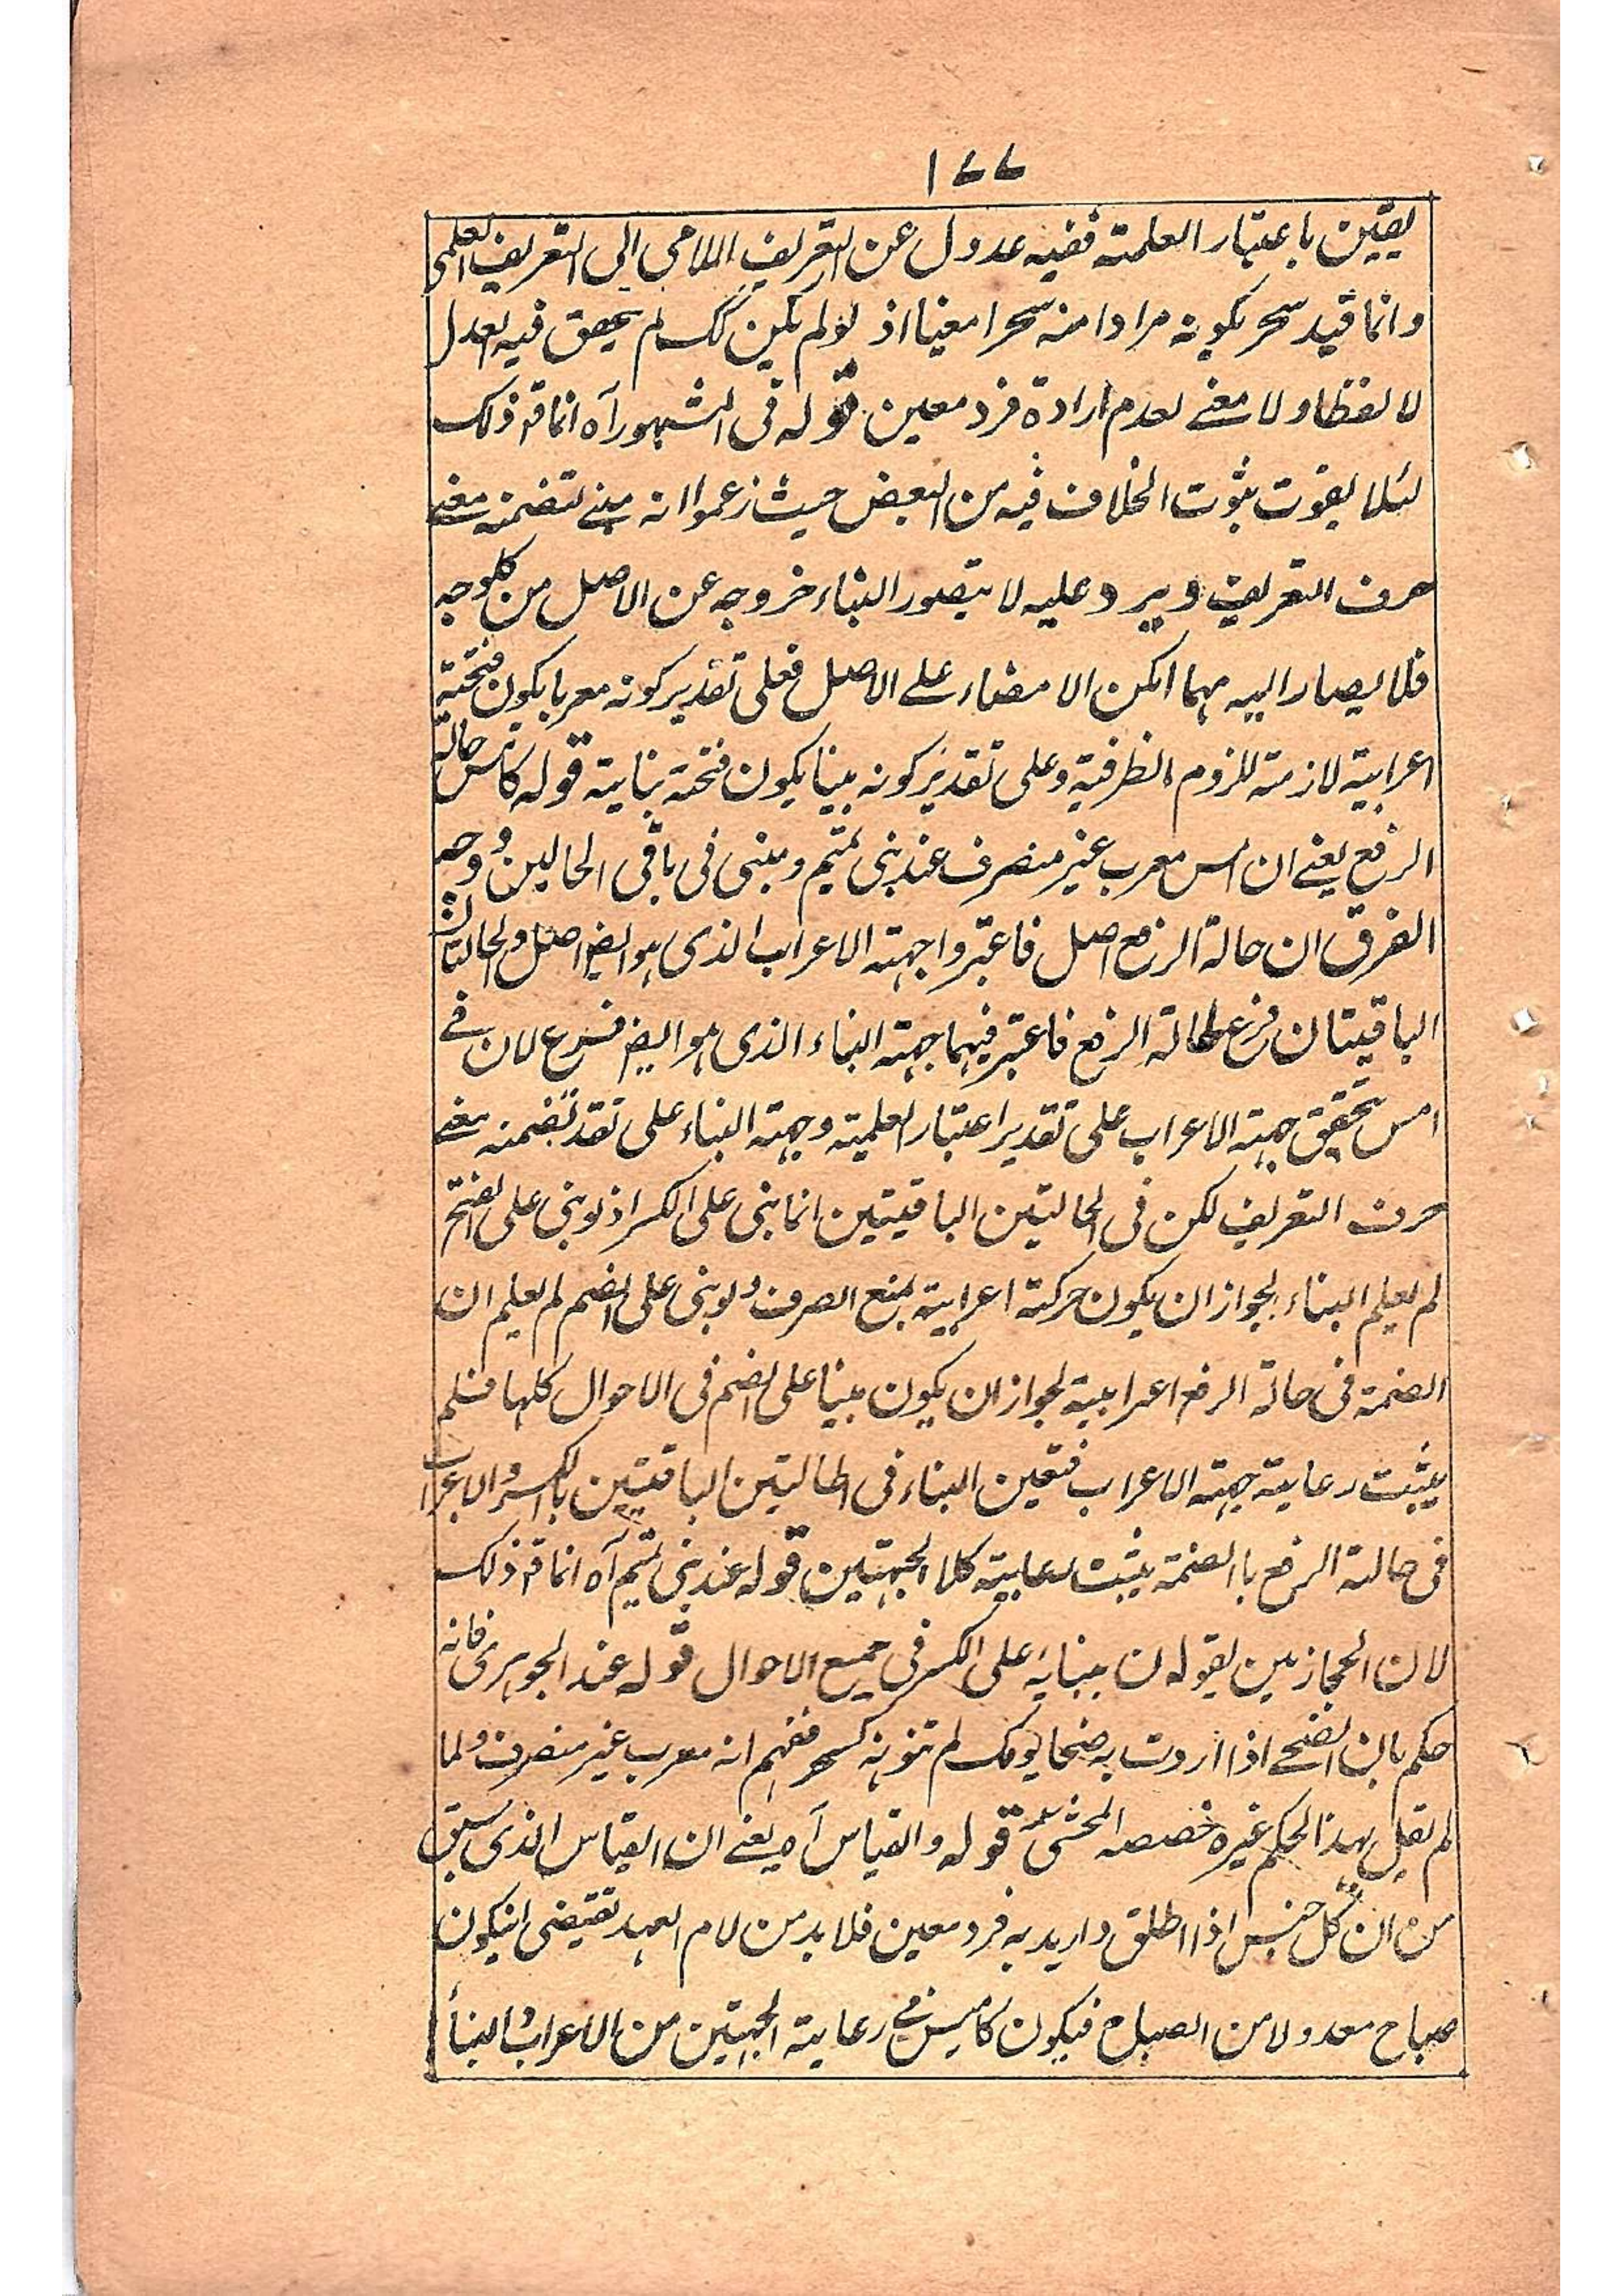 ۱۷۷
یقین باعتبار العلمیة ففیه عدول عن التعریف اللامی الی التعریف العلمی
وانما قید سحر بکونه مرادا منه سحرا معینا اذ لو لم یکن کک لم یتحقق فیه العدل
لا لفظا ولا معنے لعدم ارادة فرد معین قوله فی المشهور آه انما قر ذلک
لئلا یفوت ثبوت الخلاف فیه من البعض حیث زعموا انه مبنے لتضمنه معنے
حرف التعریف ویرد علیه لا یتصور البناء خروجه عن الاصل من کلوجه
فلا یصار الیه مهما امکن الامضاء علے الاصل فعلی تقدیر کونه معربا یکون فتحته
اعرابیة لازمة للزوم الظرفیة وعلی تقدیر کونه مبنیا یکون فتحته بنایته قوله کامس حالة
الرفع یعنے ان امس معرب غیر منصرف عند بنی تمیم ومبنی فی باقی الحالین ووجه
الفرق ان حالة الرفع اصل فاعتبروا جهته الاعراب الذی هو ایضا اصل والحالتان
الباقیتان فرع لحالة الرفع فاعتبر فیهما جهته البناء الذی هو ایضا فرع لان فے
امس تحقیق جهته الاعراب علی تقدیر اعتبار العلمیته وجهته البناء علی تقد تضمنه معنے
حرف التعریف لکن فی الحالتین الباقیتین انما بنی علی الکسر اذ لو بنی علی الفتح
لم یعلم البناء لجواز ان یکون حرکته اعرابیته لمنع الصرف ولو بنی علی الضم لم یعلم ان
الضمة فی حالة الرفع اعرابیة لجواز ان یکون مبنیا علی الضم فی الاحوال کلها فلم
یثبت رعایته جهته الاعراب فتعین البناء فی الحالتین الباقیتین بالکسر والاعراب
فی حالته الرفع باالضمة یثبت رعایته کلا الجهتین قوله عند بنی تمیم آه انما قر ذلک
لان الحجازیین یقولون ببنایه علی الکسر فی جمیع الاحوال قوله عند الجوهری فانه
حکم بان الضحے اذا اردت به ضحا یومک لم تنونه کسحر ففهم انه معرب غیر منصرف ولما
لم یقل بهذا الحکم غیره خصصه المحشی قوله والقیاس آه یعنے ان القیاس الذی سبق
من ان کل جنس اذا اطلق وارید به فرد معین فلا بد من لام العهد تقتضی انیکون
صباح معدولا من الصباح فیکون کامیس فے رعایته الجهتین من الاعراب والبنأ